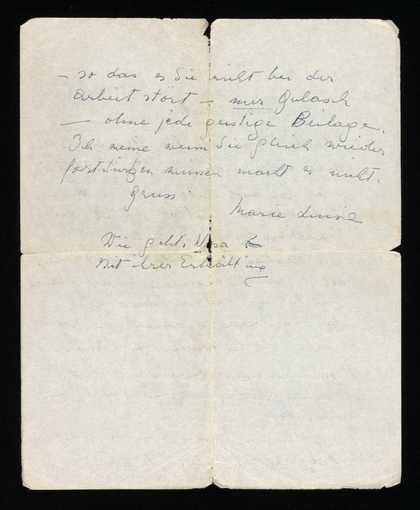 – so das es Sie nicht bei der
Arbeit stört – nur Gulasch
– ohne jede geistige Beilage.
Ich meine wenn Sie gleich wieder
fortstürzen müssen macht es nicht.
Gruss
Marie Luise
Wie geht's
mit ihrer Erkältung